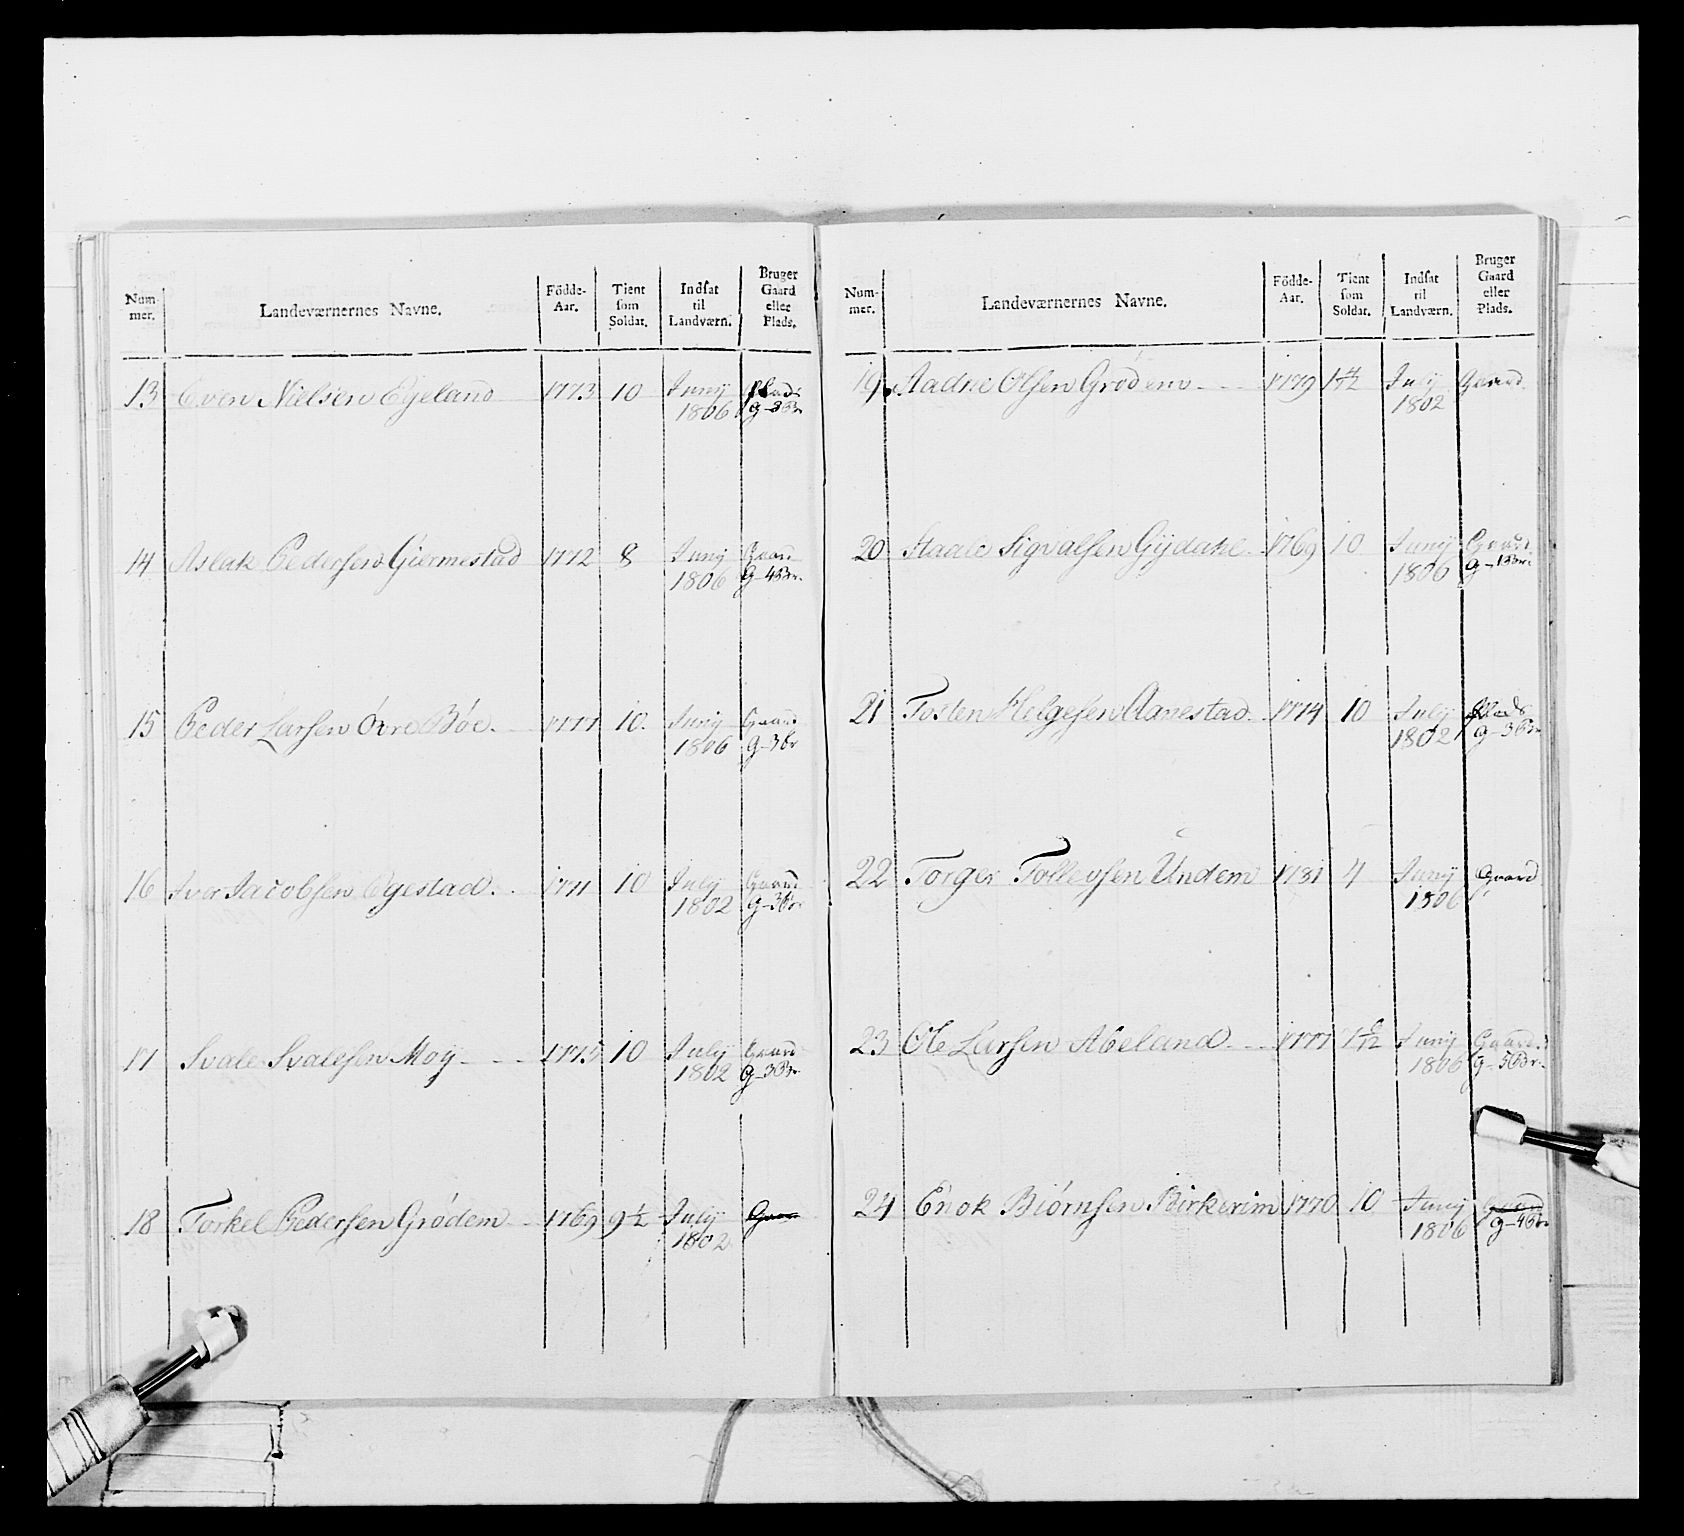 Num-
mer.
Landeværnernes Navne.
Födde-
Aar.
Tient
som
Soldat.
Indsat
til
Landværn.
Bruger
Gaard
eller
Plads.
13 Even Nielsen Eyeland 1773 10 Junij Plads
1806 G-3Br
14 Aslak Pedersen Giermestad 1772 8 Junij Gaard
1806 G-4Br.
15 Peder Larsen Övre Böe. 1777 10. Junij Gaard
1806 G-3br
16 Iver Jacobsen Eyestad. 1771 10 July Gaard
1802 G-3br.
17 Svale Svalesen Moy 1775 10 Julij Gaard
1802 G-3Br
18 Torkel Pedersen Grödem 1769 9½ Julij Gaar
1802
Num-
mer.
Landeværnernes Navne.
Födde-
Aar.
Tient
som
Soldat.
Indsat
til
Landværn.
Bruger
Gaard
eller
Plads.
19 Aadne Olsen Grödem 1779 1 4/12 July Gaard
1802
20 Staale Sigvalsen Gydahl 1769 10 Junij Gaard
1806 G-1Br.
21 Tosten Helgesen Aanestad 1774 10 July Plads
1802 G-3Br
22 Torger Tollevsen Undem 1781 4 Junij Gaard
1806
23 Ole Larsen Abeland 1777 Junij Gaard
1806
24 Enok Biörnsen Birkerim 1770 10 Junij Gaard
1806 G-4Br